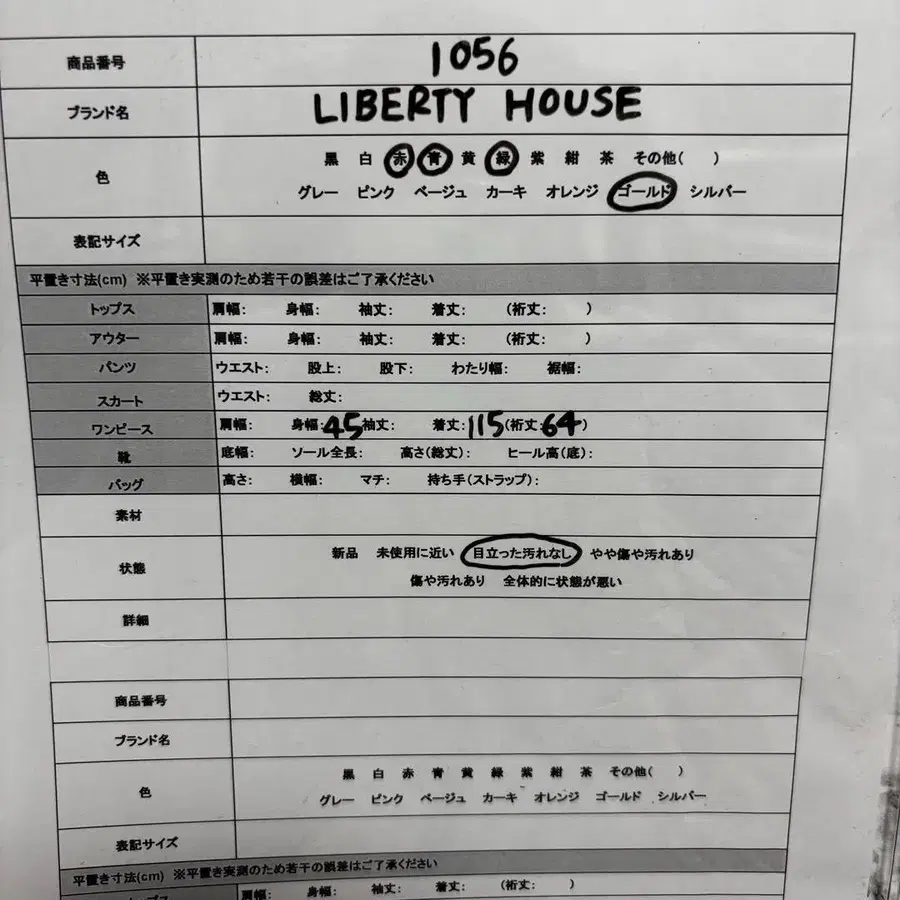 商品番号 1056
ブランド名 LIBERTY HOUSE
色 黒 白 赤 青 黄 緑 紫 紺 茶 その他( )
グレー ピンク ベージュ カーキ オレンジ ゴールド シルバー
表記サイズ
平置き寸法(cm) ※平置き実測のため若干の誤差はご了承ください
トップス 肩幅: 身幅: 袖丈: 着丈: (裄丈: )
アウター 肩幅: 身幅: 袖丈: 着丈: (裄丈: )
パンツ ウエスト: 股上: 股下: わたり幅: 裾幅:
スカート ウエスト: 総丈:
ワンピース 肩幅: 身幅:45 袖丈: 着丈:115 (裄丈:64)
靴 底幅: ソール全長: 高さ(総丈): ヒール高(底):
バッグ 高さ: 横幅: マチ: 持ち手(ストラップ):
素材
状態 新品 未使用に近い 目立った汚れなし やや傷や汚れあり
傷や汚れあり 全体的に状態が悪い
詳細
商品番号
ブランド名
色 黒 白 赤 青 黄 緑 紫 紺 茶 その他( )
グレー ピンク ベージュ カーキ オレンジ ゴールド シルバー
表記サイズ
平置き寸法(cm) ※平置き実測のため若干の誤差はご了承ください
トップス 肩幅: 身幅: 袖丈: 着丈: (裄丈: )